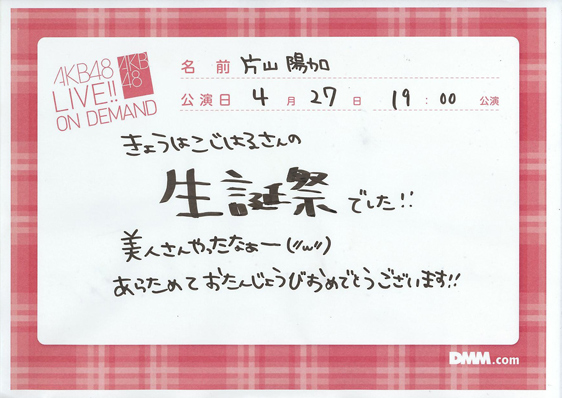 AKB48
LIVE!!
ON DEMAND
AKB
48
名 前 片山 陽加
公演日 4 月 27 日 19 : 00 公演
きょうはこじはるさんの
生誕祭でした!!
美人さんやったなぁー(〃ω〃)
あらためておたんじょうびおめでとうございます!!
DMM.com